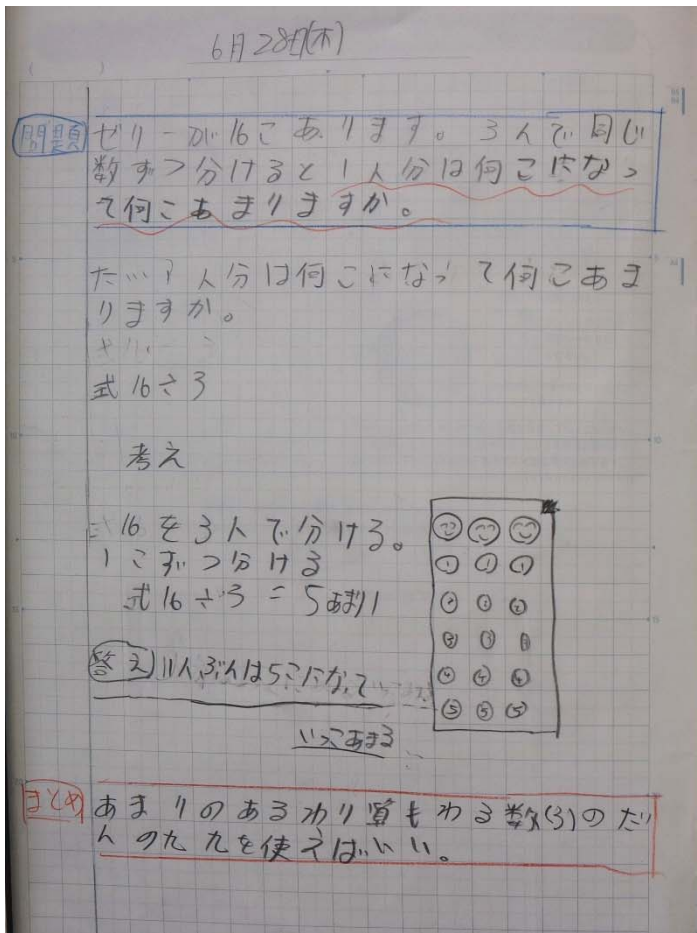 6月28日(木)
問題 ゼリーが16こあります。3人で同じ
数ずつ分けると1人分は何こになっ
て何こあまりますか。
た…1人分は何こになって何こあま
りますか。
式16÷3
考え
16を3人で分ける。
1こずつ分ける
式16÷3=5あまり1
① ① ①
② ② ②
③ ③ ③
④ ④ ④
⑤ ⑤ ⑤
答え 1人ぶんは5こになって
いっこあまる
まとめ あまりのあるわり算もわる数(3)のだ
んの九九を使えばいい。